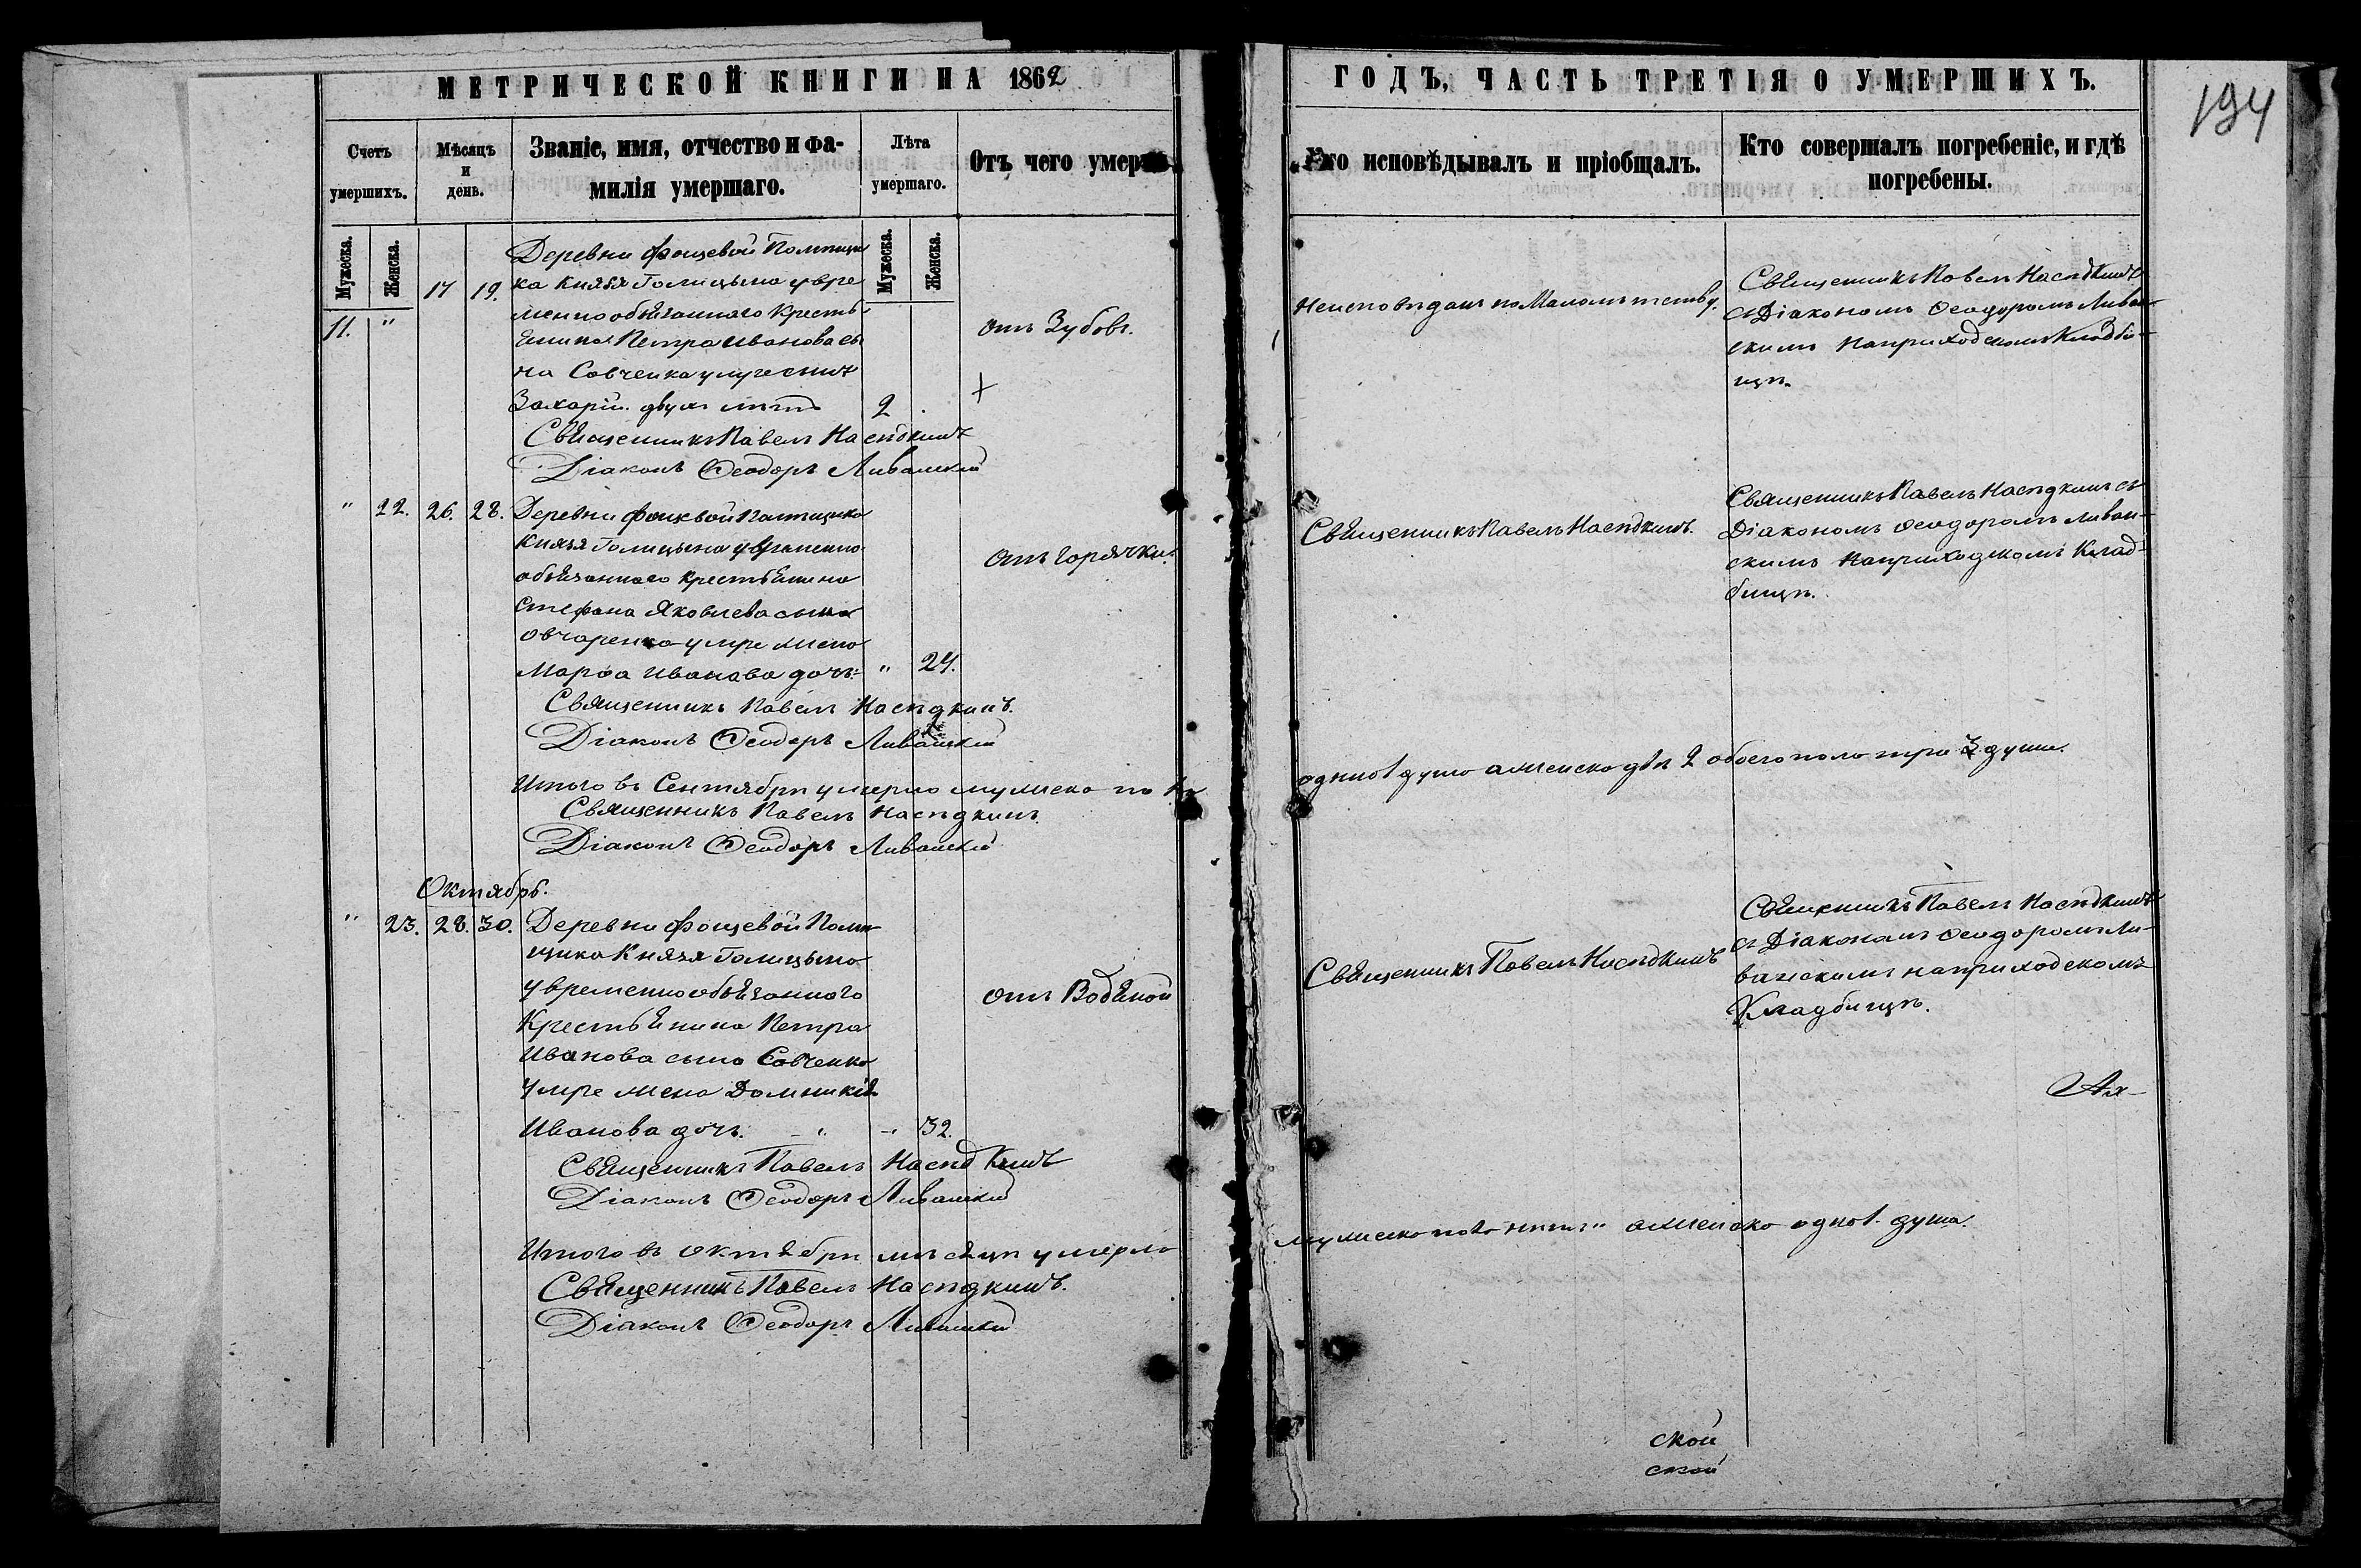 МЕТРИЧЕСКОЙ КНИГИ НА 1862
ГОДЪ, ЧАСТЬ ТРЕТІЯ О УМЕРШИХЪ.
194
Счетъ умершихъ.
Мѣсяцъ и день.
Званіе, имя, отчество и фа-
милія умершаго.
Лѣта умершаго.
Отъ чего умеръ
Кто исповѣдывалъ и пріобщалъ.
Кто совершалъ погребеніе, и гдѣ
погребены.
Мужеска.
Женска.
Мужеска.
Женска.
11. " 17 19.
Деревни Фощевой Помѣщи
ка Князя Голицына увре
менно обязаннаго Кресть
янина Петра Иванова сы
на Савченка умре сынъ
Захарій двухъ лѣтъ 2
отъ Зубовъ.
Неисповѣданъ по Малолѣтству.
Священникъ Павелъ Насѣдкинъ
съ Діакономъ Ѳеодоромъ Ливан-
скимъ на приходскомъ Кладби-
щѣ.
Священникъ Павелъ Насѣдкинъ
Діаконъ Ѳеодоръ Ливанскій
" 22. 26. 28.
Деревни Фощевой Помѣщика
Князя Голицына увременно
обязаннаго крестьянина
Стефана Яковлева сына
Овчаренка умре жена
Марѳа Иванова дочь: " 24.
отъ горячки.
Священникъ Павелъ Насѣдкинъ.
Священникъ Павелъ Насѣдкинъ съ
Діакономъ Ѳеодоромъ Ливан-
скимъ на приходскомъ Клад-
бищѣ.
Священникъ Павелъ Насѣдкинъ.
Діаконъ Ѳеодоръ Ливанскій
Итого въ Сентябрѣ умерло мужеска по
одна 1 душа а женска двѣ 2 обоего пола три 3 души.
Священникъ Павелъ Насѣдкинъ.
Діаконъ Ѳеодоръ Ливанскій
Октябрь.
" 23. 28. 30.
Деревни Фощевой Помѣ
щика Князя Голицына
увременно обязаннаго
Крестьянина Петра
Иванова сына Савченко
умре жена Домникія
Иванова дочь. " 32.
отъ Водяной
Священникъ Павелъ Насѣдкинъ
Священникъ Павелъ Насѣдкинъ
съ Діакономъ Ѳеодоромъ Ли-
ванскимъ на приходскомъ
Кладбищѣ.
Священникъ Павелъ Насѣдкинъ
Діаконъ Ѳеодоръ Ливанскій
Итого въ октябрѣ мѣсяцѣ умерло
мужеска пола нѣтъ " а женска одна 1. душа.
Священникъ Павелъ Насѣдкинъ.
Діаконъ Ѳеодоръ Ливанскій
ской
ской